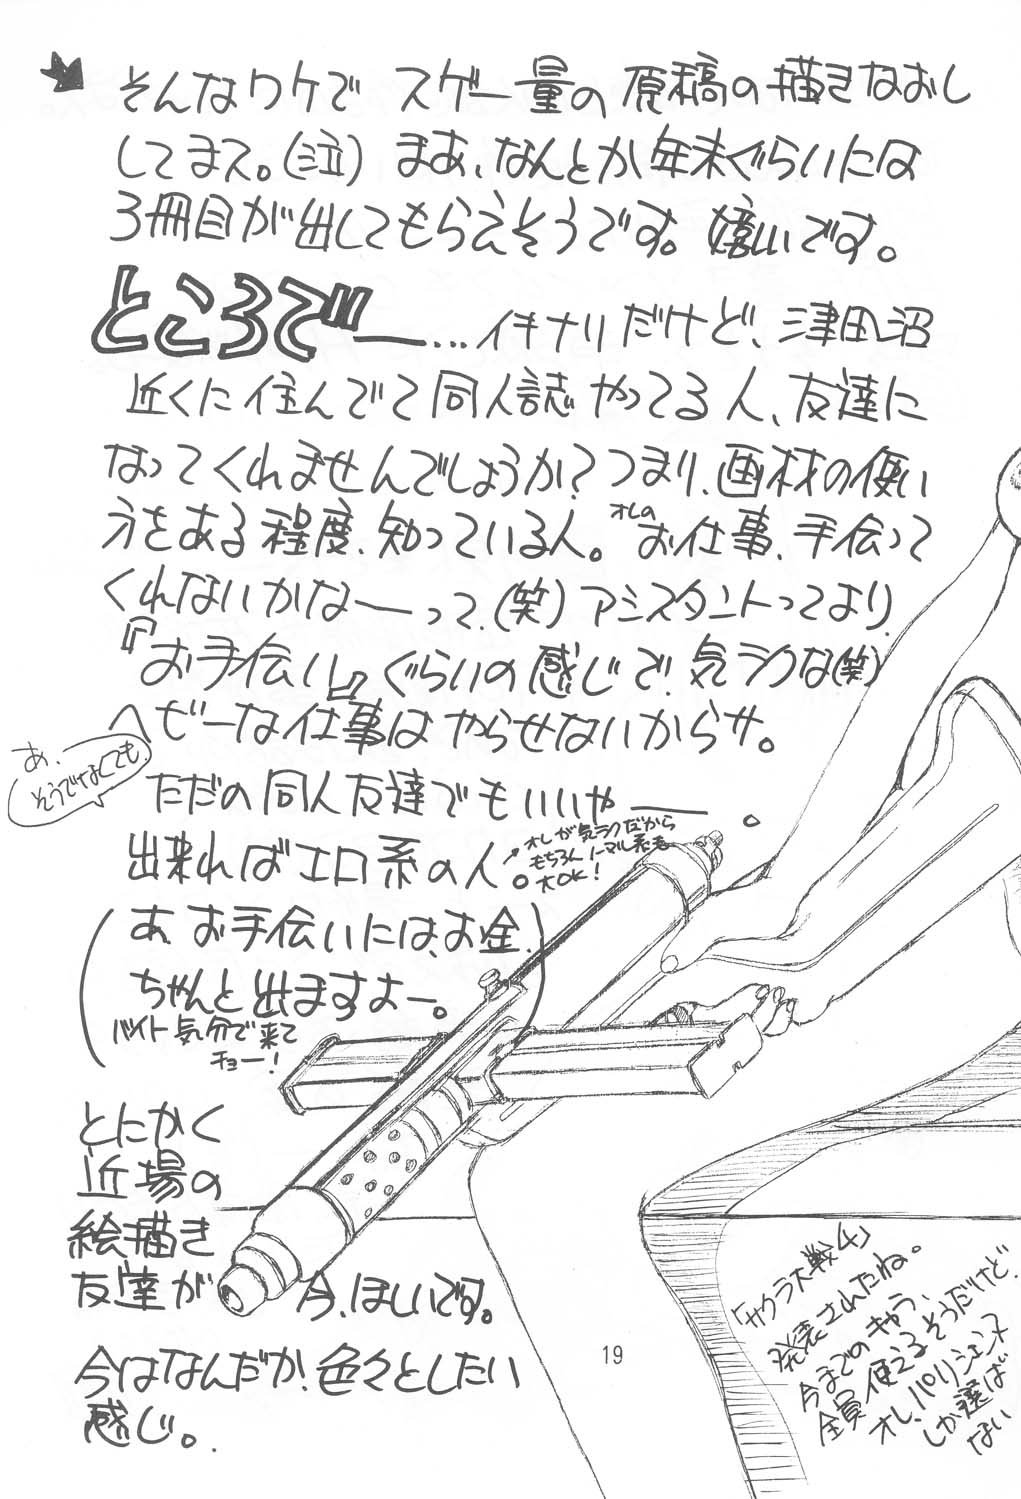 そんなワケで スゲー量の原稿の描きなおし
してまス。(泣) まあ、なんとか年末ぐらいには
3冊目が出してもらえそうです。嬉しいです。
ところでー…イキナリだけど、津田沼
近くに住んでて同人誌やってる人、友達に
なってくれませんでしょうか?つまり、画材の使い
方をある程度、知っている人。オレのお仕事、手伝って
くれないかなーって、(笑)アシスタントってより、
『お手伝い』ぐらいの感じで!気ラクな(笑)
ヘビーな仕事はやらせないからサ。
あ、
そうでなくても、
ただの同人友達でもいいやー。
出来ればエロ系の人。
オレが気ラクだから
もちろんノーマル系も
大OK!
(あ、お手伝いには、お金、
ちゃんと出ますよー。
バイト気分で来て
チョー!)
とにかく
近場の
絵描き
友達が 今、ほしいです。
今はなんだか、色々としたい
感じ。
19
「サクラ大戦4」
発表されたね。
今までのキャラ、
全員使えるそうだけど、
オレ、パリジェンヌ
しか選ば
ない